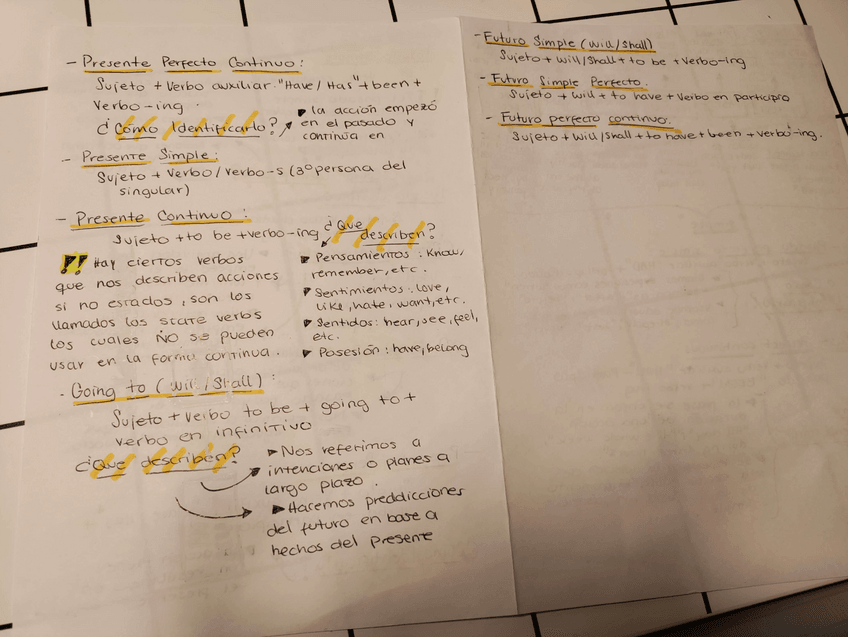 - Presente Perfecto Continuo:
Sujeto + Verbo auxiliar "Have/Has" + been +
Verbo-ing.
¿Cómo Identificarlo?
▶ la acción empezó
en el pasado y
continua en
- Presente Simple:
Sujeto + Verbo/verbo-s (3º persona del
singular)
- Presente Continuo:
Sujeto + to be + verbo-ing
¿Que describen?
!! Hay ciertos verbos
que nos describen acciones
si no estados, son los
llamados los state verbs
los cuales NO se pueden
usar en la forma continua.
▶ Pensamientos: Know,
remember, etc.
▶ Sentimientos: love,
like, hate, want, etc.
▶ Sentidos: hear, see, feel,
etc.
▶ Posesión: have, belong
- Going to (Will/Shall):
Sujeto + verbo to be + going to +
verbo en infinitivo
¿Que describen?
▶ Nos referimos a
intenciones o planes a
largo plazo.
▶ Hacemos preddicciones
del futuro en base a
hechos del presente
- Futuro Simple (will/shall)
Sujeto + will/shall + to be + verbo-ing
- Futuro Simple Perfecto.
Sujeto + will + to have + verbo en participio
- Futuro perfecto continuo.
Sujeto + will/shall + to have + been + verbo-ing.